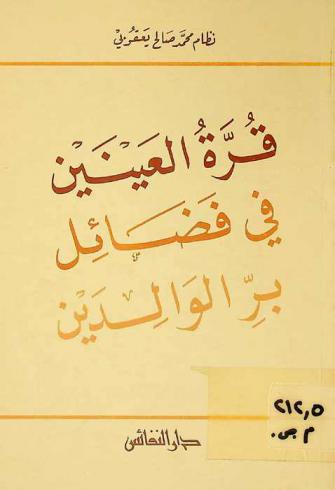 نظام محمد صالح يعقوبي
قُرَّةُ العَيْنَيْنِ
في فَضَائِل
بِرِّ الوَالِدَيْن
٢١٢,٥
دار النفائس